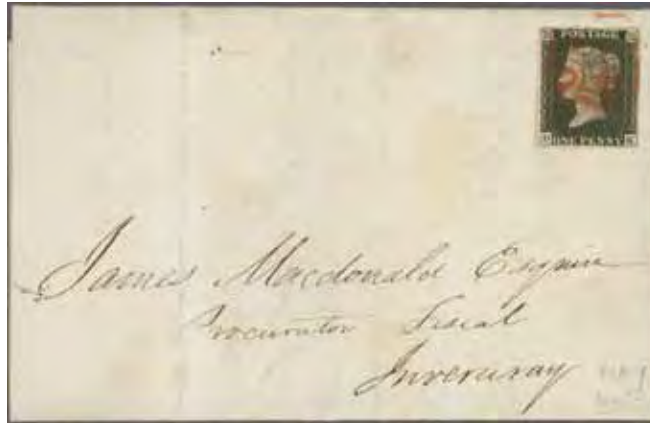 POSTAGE
ONE PENNY
James Macdonald Esquire
Procurator Fiscal
Inveraray